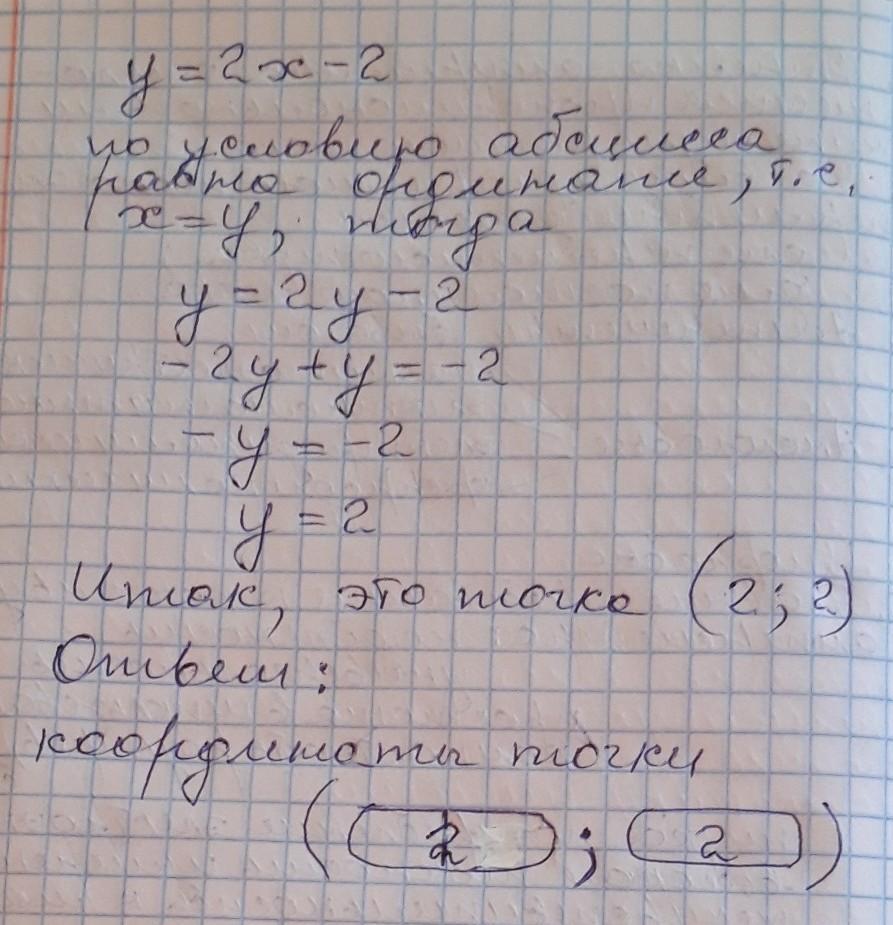 y = 2x - 2
по условию абсцисса
равна ординате, т.е.
x = y, тогда
y = 2y - 2
- 2y + y = -2
- y = -2
y = 2
Итак, это точка (2; 2)
Ответ:
координаты точки
(2; 2)